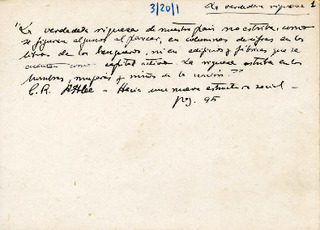 3/20/1
La verdadera riqueza 1
"La verdadera riqueza de nuestro país no estriba, como
se figuran algunos al parecer, en columnas de cifras en los
libros de los banqueros, ni en edificios y fábricas que se
cuentan como capital activo. La riqueza estriba en los
hombres, mujeres y niños de la nación."
C.R. Attlee - Hacia una nueva estructura social -
pág. 95